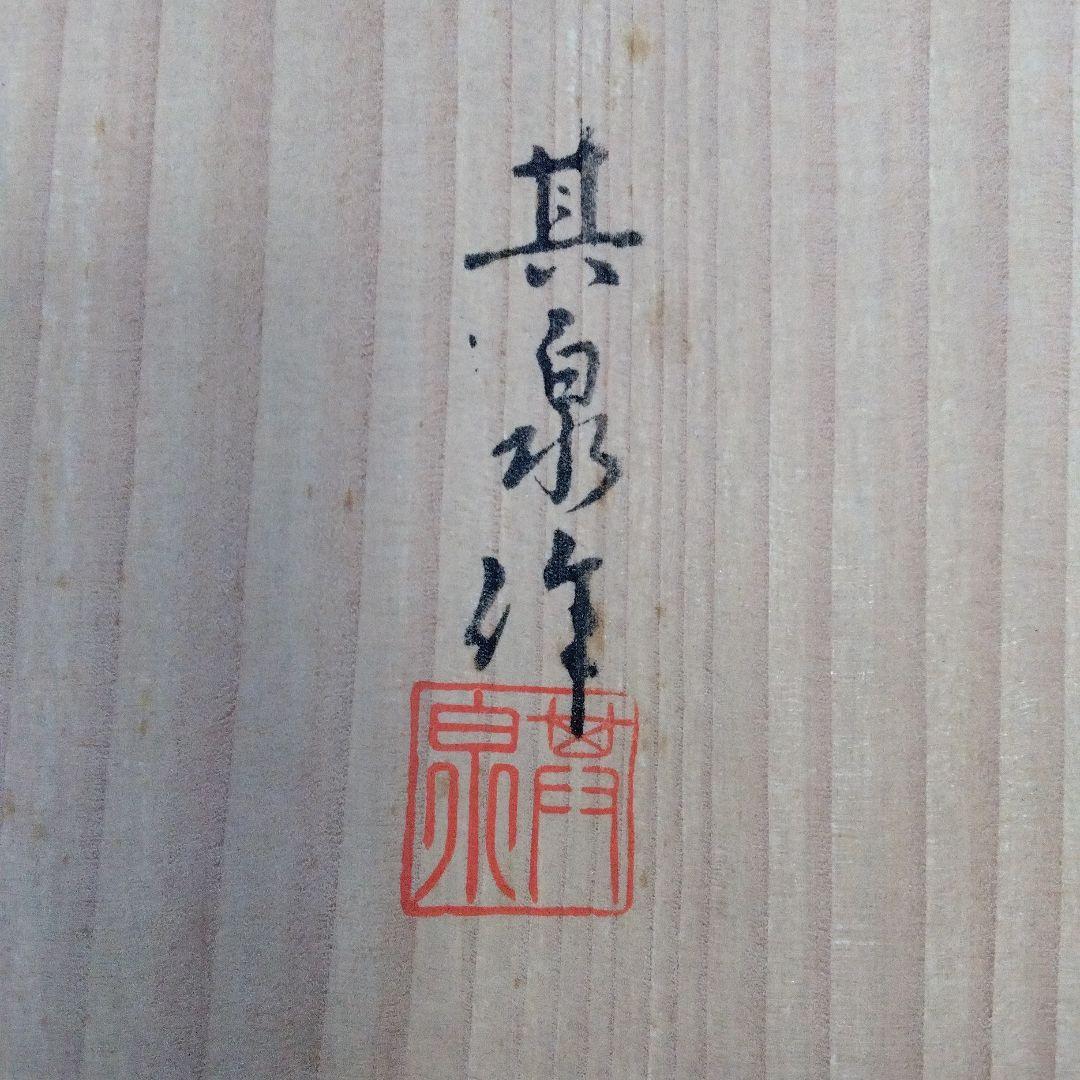 其泉作
其泉